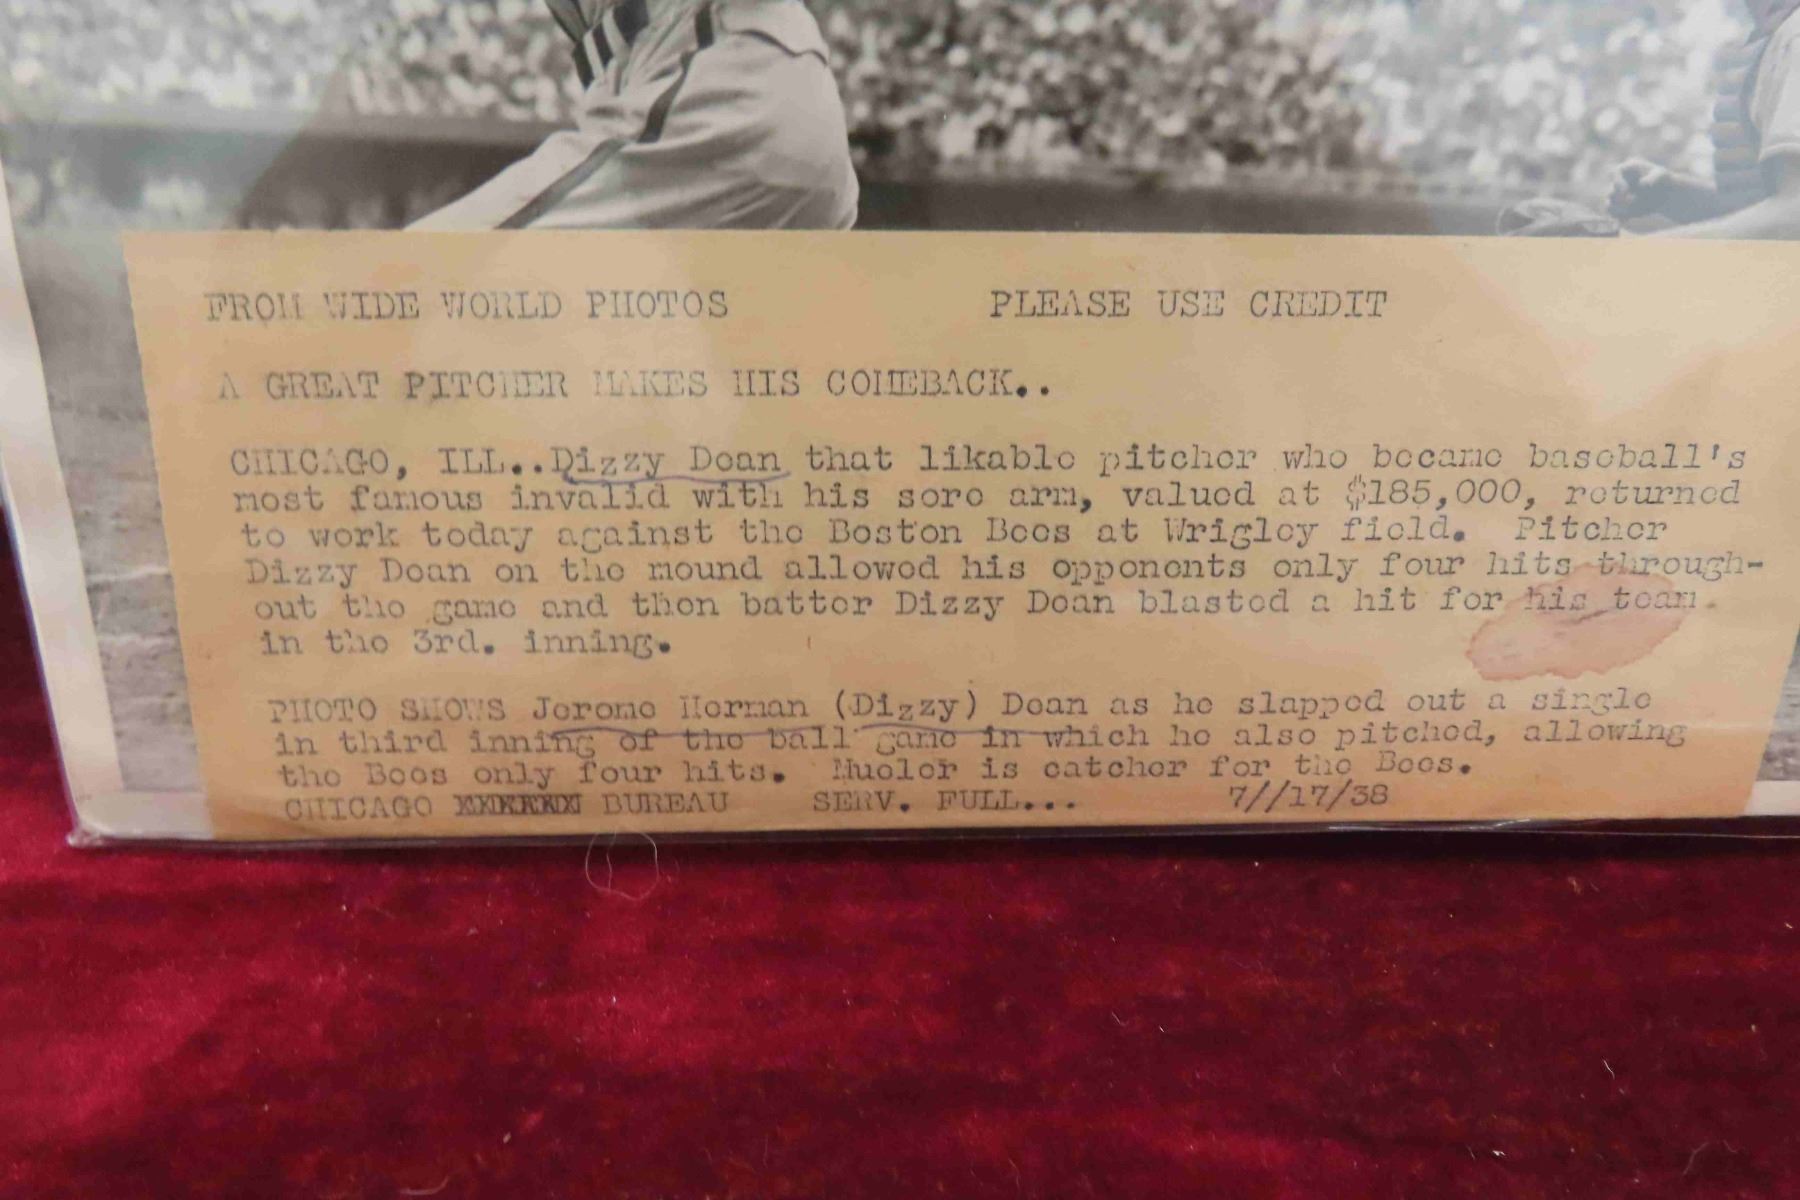 FROM WIDE WORLD PHOTOS PLEASE USE CREDIT
A GREAT PITCHER MAKES HIS COMEBACK..
CHICAGO, ILL..Dizzy Dean that likable pitcher who became baseball's
most famous invalid with his sore arm, valued at $185,000, returned
to work today against the Boston Bees at Wrigley field. Pitcher
Dizzy Dean on the mound allowed his opponents only four hits through-
out the game and then batter Dizzy Dean blasted a hit for his team.
in the 3rd. inning.
PHOTO SHOWS Jerome Herman (Dizzy) Dean as he slapped out a single
in third inning of the ball game in which he also pitched, allowing
the Bees only four hits. Mueler is catcher for the Bees.
CHICAGO BUREAU SERV. FULL... 7//17/38